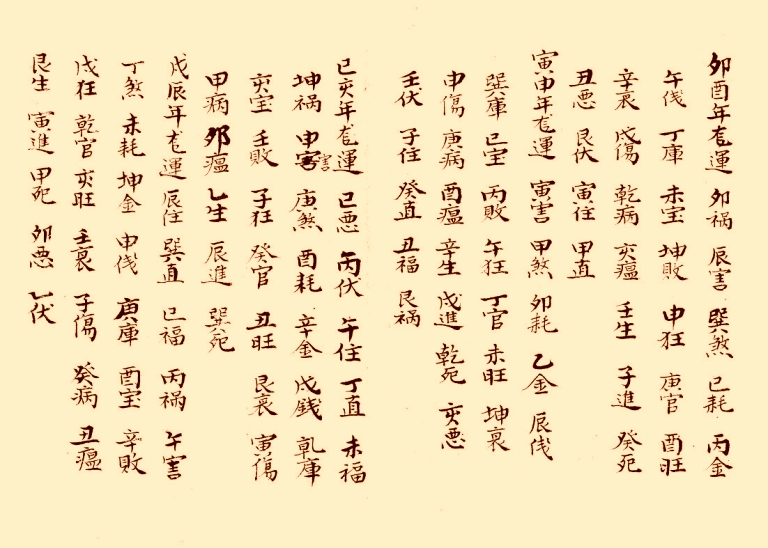 卯酉年運 卯祸 辰害 巽煞 巳耗 丙金
午𫢸 丁庫 未宝 坤敗 申狂 庚官 酉旺
辛衰 戌傷 乾病 亥瘟 壬生 子進 癸死
丑悪 艮伏 寅住 甲直
寅申年運 寅害 甲煞 卯耗 乙金 辰𫢸
巽庫 巳宝 丙敗 午狂 丁官 未旺 坤衰
申傷 庚病 酉瘟 辛生 戌進 乾死 亥悪
壬伏 子住 癸直 丑福 艮祸
巳亥年運 巳悪 丙伏 午住 丁直 未福
坤祸 申害害 庚煞 酉耗 辛金 戌錢 乾庫
亥宝 壬敗 子狂 癸官 丑旺 艮衰 寅傷
甲病 卯瘟 乙生 辰進 巽死
戌辰年運 辰住 巽直 巳福 丙祸 午害
丁煞 未耗 坤金 申𫢸 庚庫 酉宝 辛敗
戌狂 乾官 亥旺 壬衰 子傷 癸病 丑瘟
艮生 寅進 甲死 卯悪 乙伏